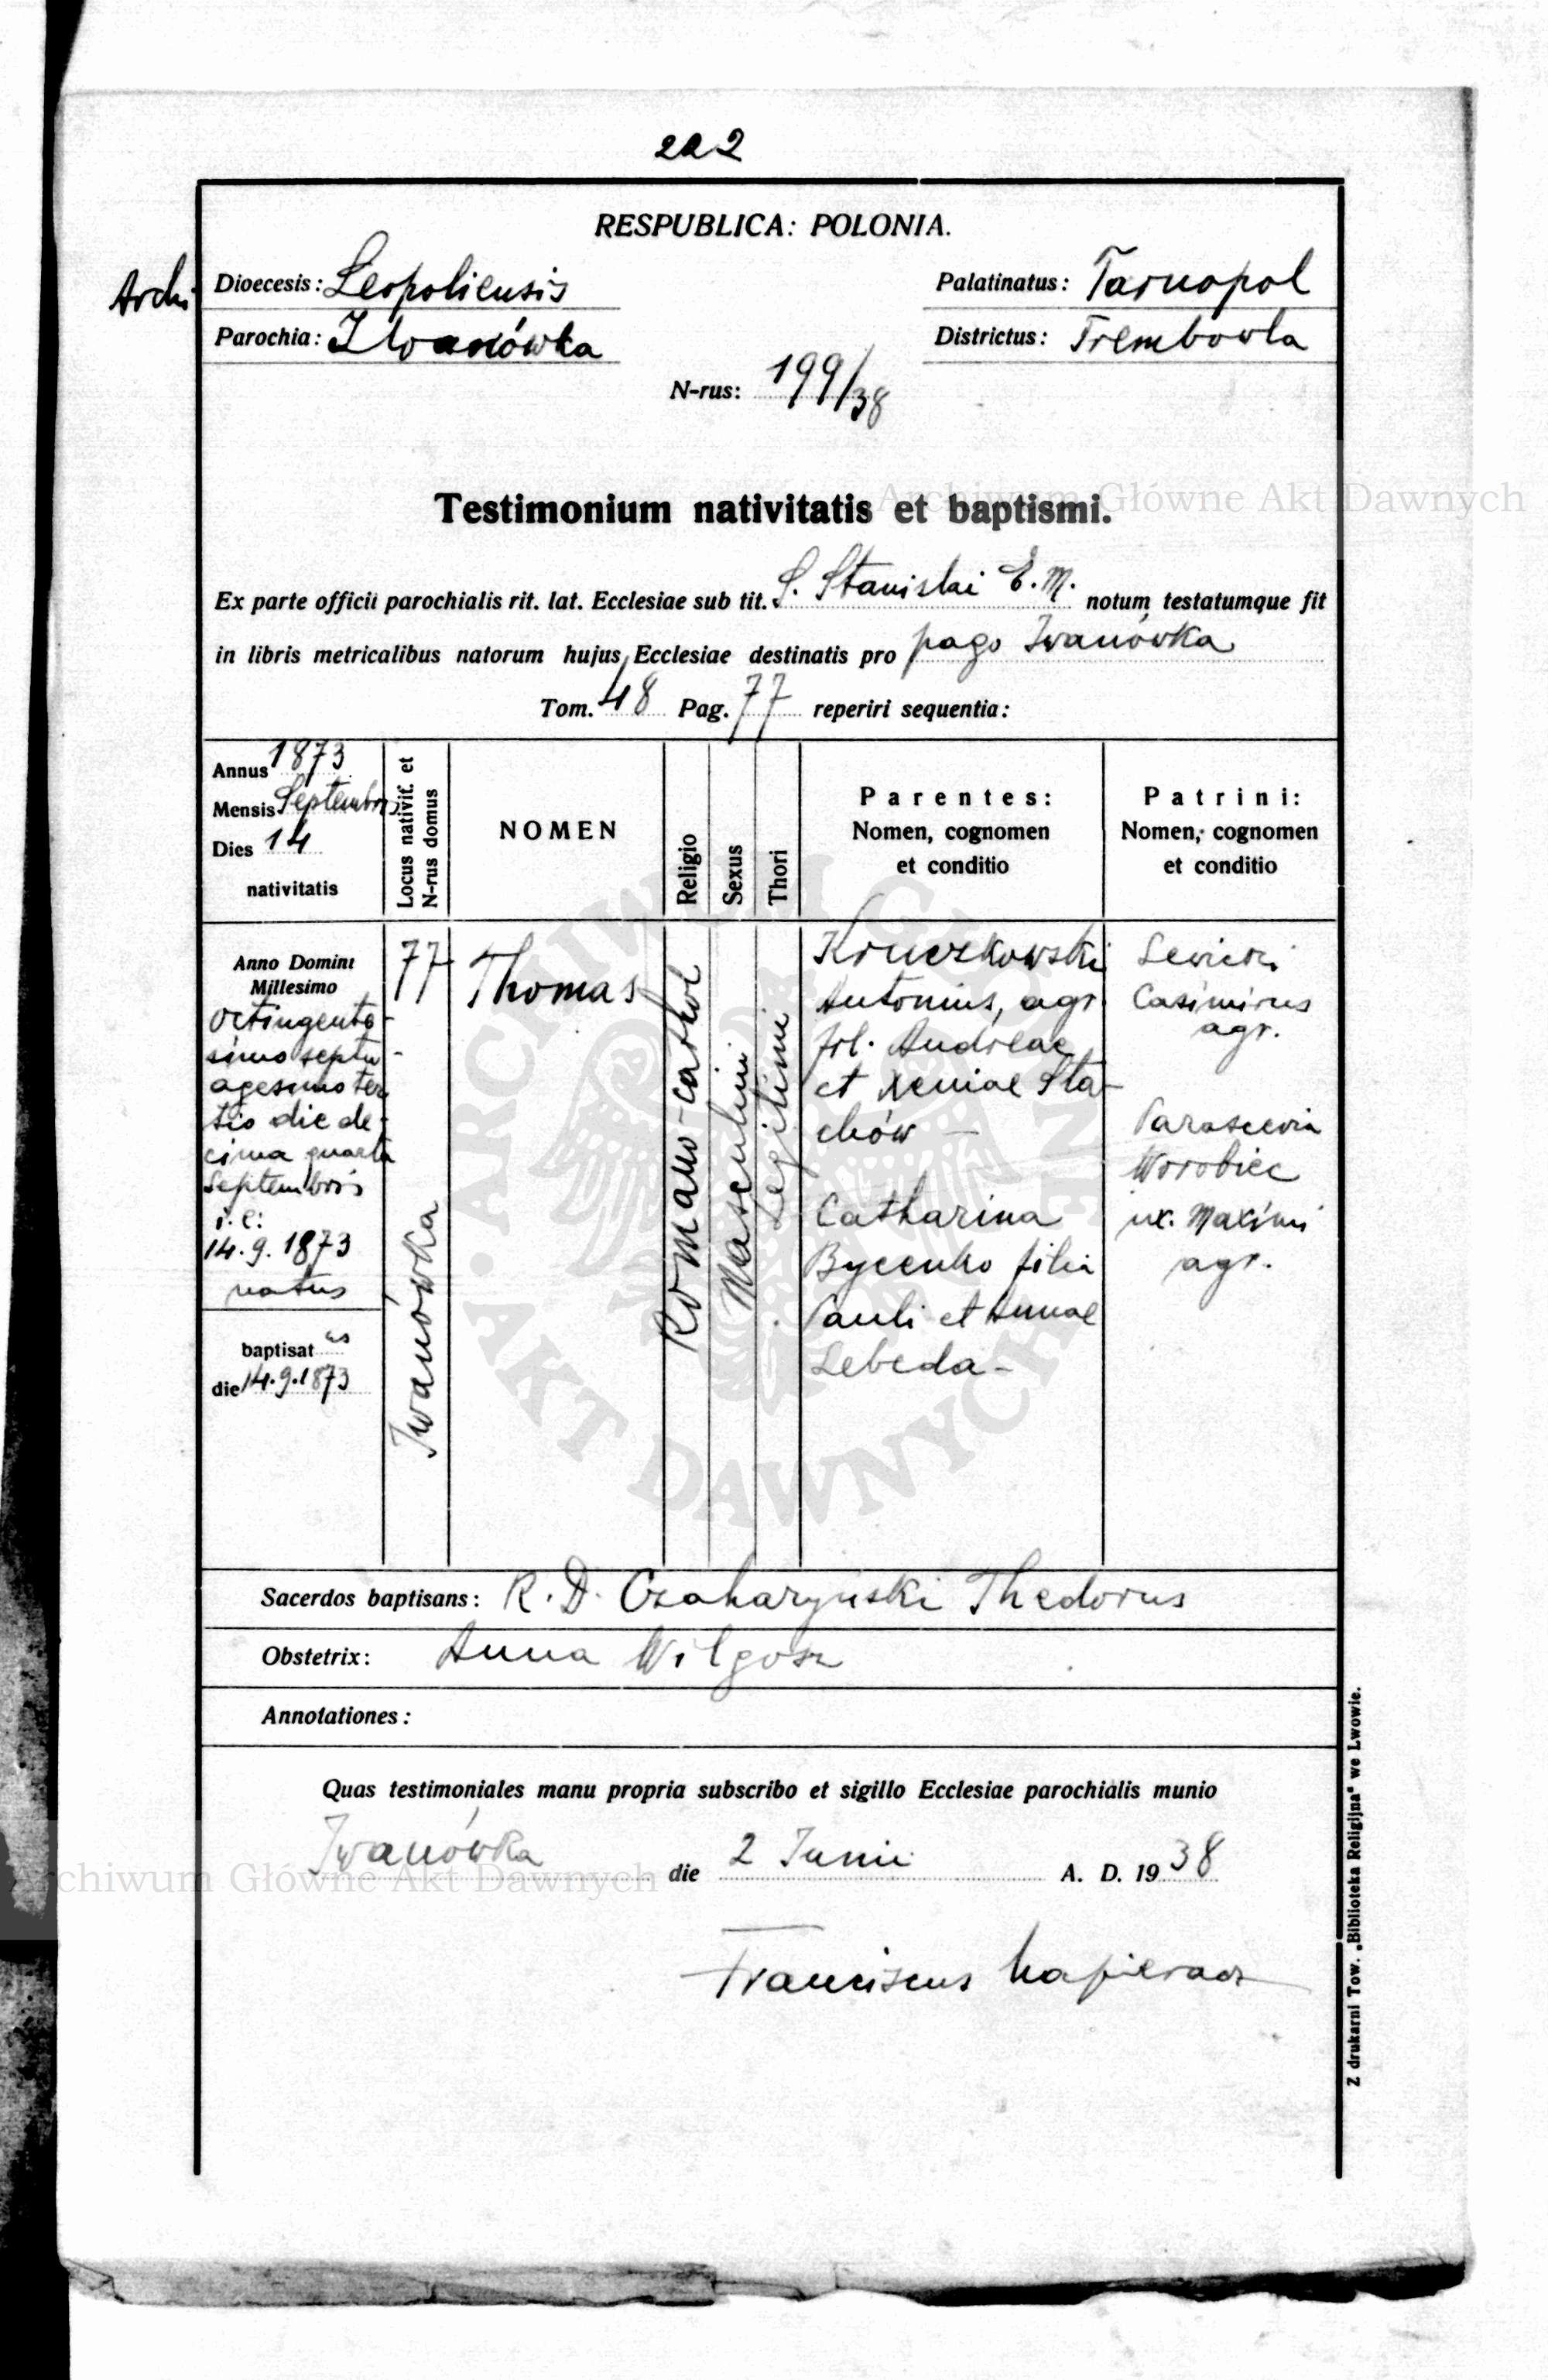 222
RESPUBLICA: POLONIA.
Archi Dioecesis: Leopoliensis
Palatinatus: Tarnopol
Parochia: Iwanówka
Districtus: Trembowla
N-rus: 199/38
Testimonium nativitatis et baptismi.
Archiwum Główne Akt Dawnych
Ex parte officii parochialis rit. lat. Ecclesiae sub tit. S. Stanislai E. M. notum testatumque fit
in libris metricalibus natorum hujus Ecclesiae destinatis pro pago Iwanówka
Tom. 18 Pag. 77 reperiri sequentia:
Annus 1873
Mensis Septembris
Dies 14
nativitatis
Locus nativit. et
N-rus domus
NOMEN
Religio
Sexus
Thori
Parentes:
Nomen, cognomen
et conditio
Patrini:
Nomen, cognomen
et conditio
Anno Domini
Millesimo
octingente-
simo septu-
agesimo ter
tio die de-
cima quarta
Septembris
i. e:
14. 9. 1873
natus
baptisat us
die 14.9.1873
77
Iwanówka
Thomas
Romano-cathol
Masculini
Legitimi
Kruczkowski
Antonius, agr.
fil. Andreae
et Xeniae Sta-
chów –
Catharina
Bycenko filia
Pauli et Annae
Lebeda –
Casimirus
agr.
Parascevia
Worobiec
ux. Maximi
agr.
ARCHIWUM GŁÓWNE AKT DAWNYCH
Sacerdos baptisans: R. D. Czaharyński Thedorus
Obstetrix: Anna Wilgosz
Annotationes:
Quas testimoniales manu propria subscribo et sigillo Ecclesiae parochialis munio
Iwanówka die 2 Junii A. D. 19 38
Archiwum Główne Akt Dawnych
Franciscus
Z drukarni Tow. „Biblioteka Religijna" we Lwowie.